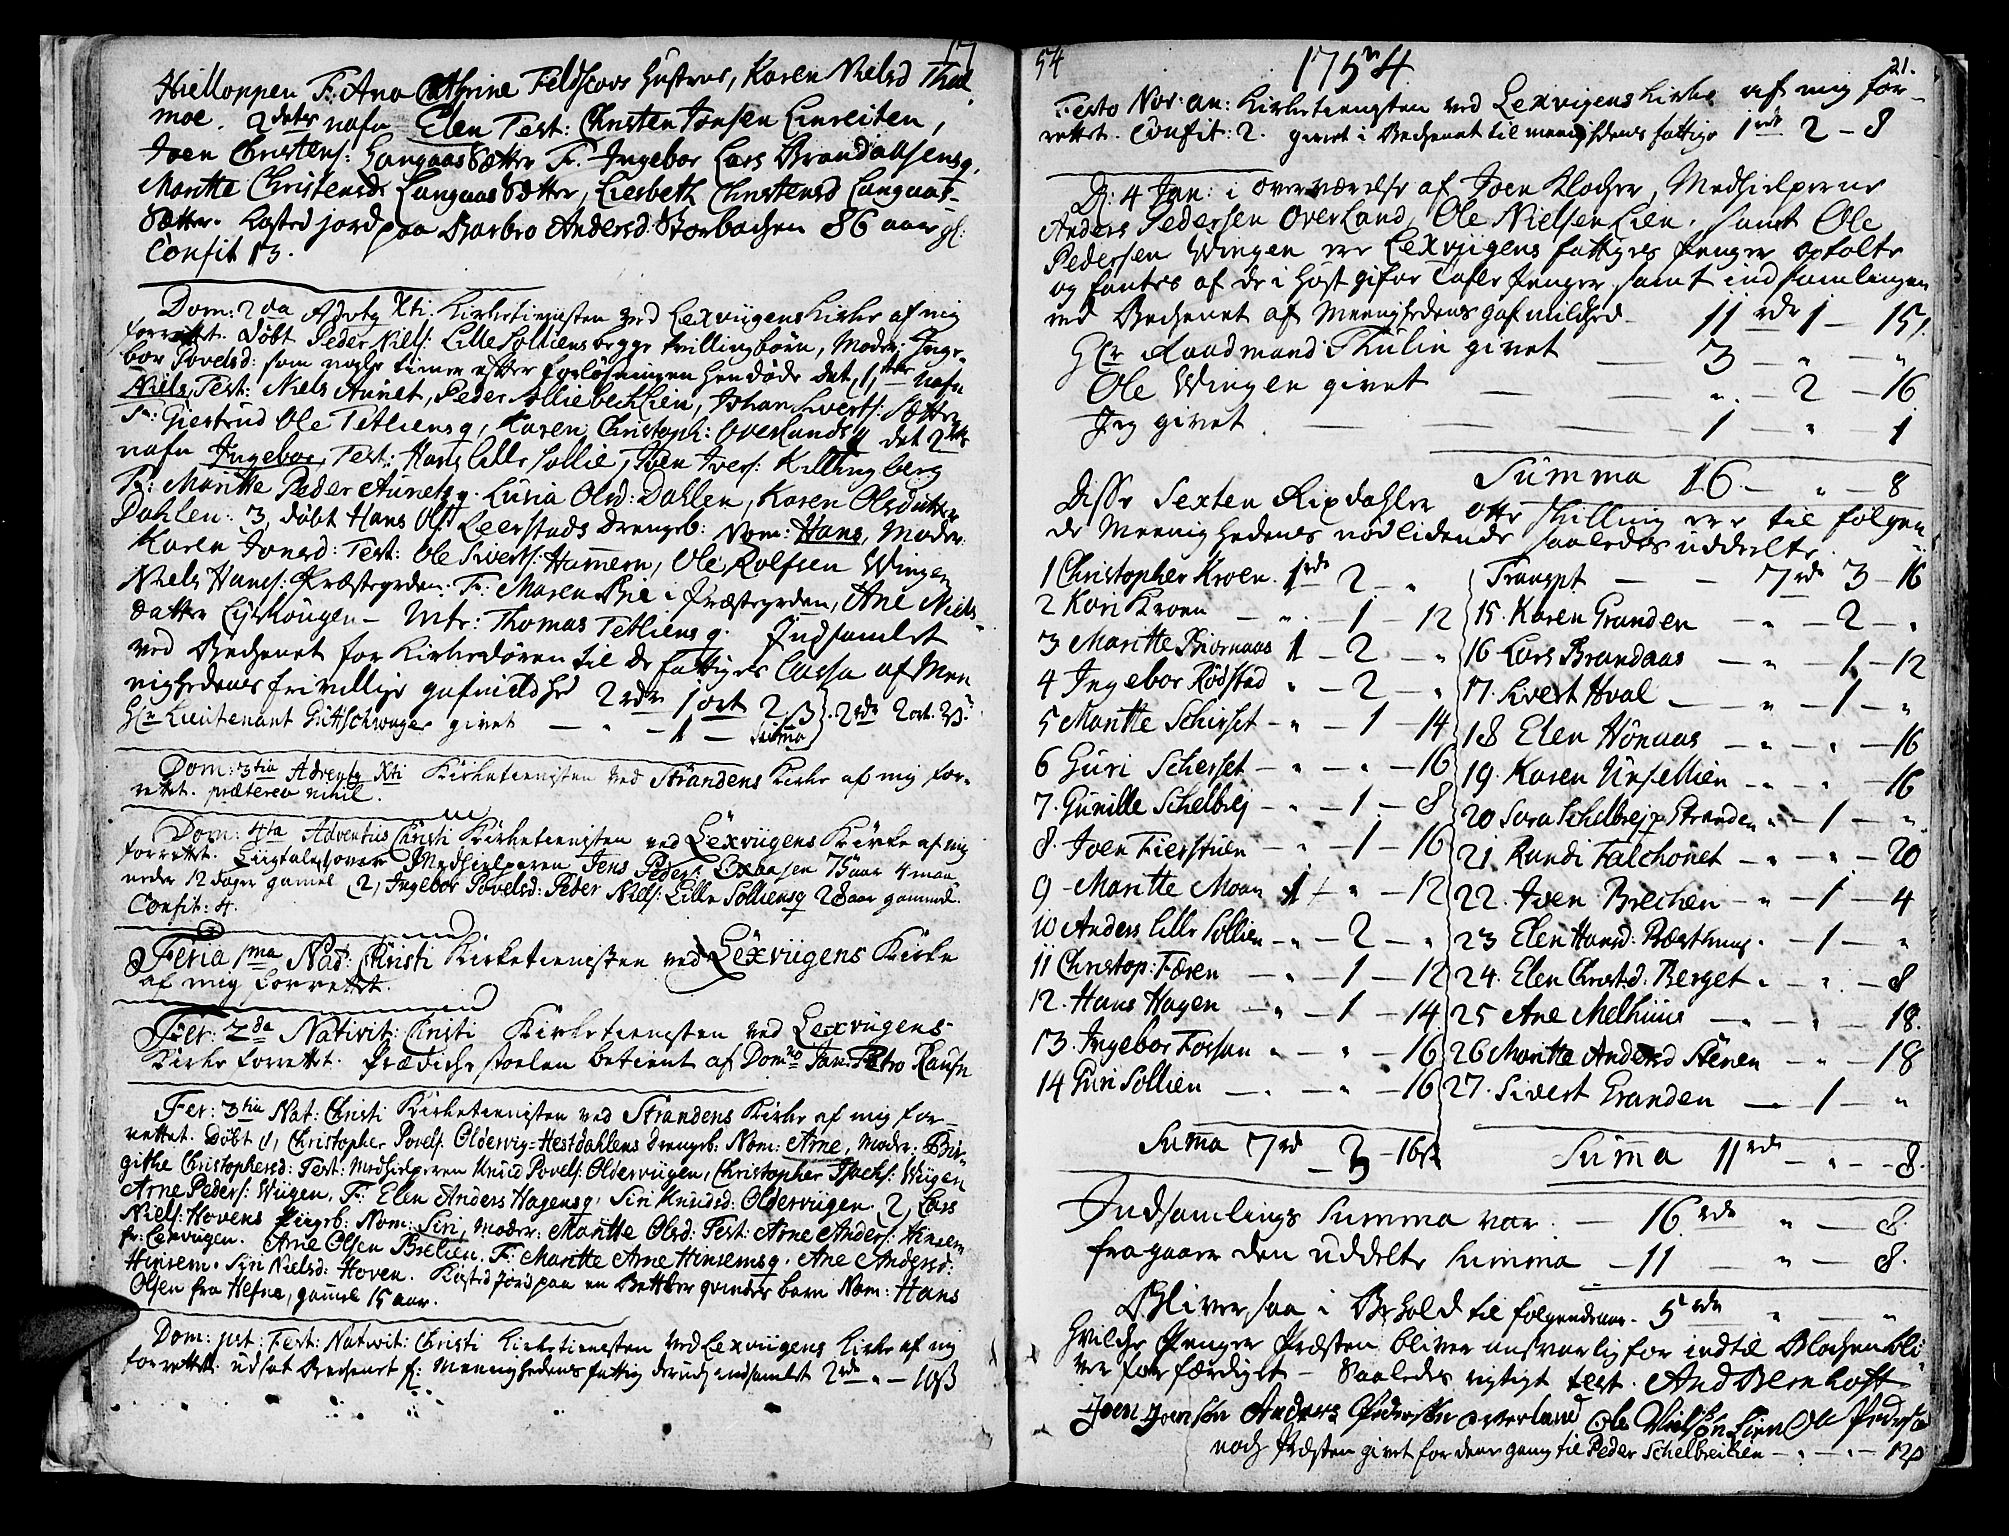 17
Hielloppen F. Ana Cathrine Feldscovs Hustrue, Karen Nielsd Thel
moe. 2 deter nafn Elen Test: Christen Jonsen Linreiten,
Joen Christens: Langaas Sætter F. Ingebor Lars Brandaasens q,
Maritte Christensd: Langaas Sætter, Liesbeth Christensd Langaas
Sætter. Kasted jord paa Barbro Andersd: Storbachen 86 aar gl:
Confit 13.
Dom: 2da Advty Xti. Kirketienesten ved Lexvigens Kirke af mig
forrettet. Døbt Peder Niels: Lille Solliens begge tvillingbørn, Moder: Inge-
bor Povelsd: som nogle timer efter forløsningen hendøde det, 1, nafn
Niels, Test: Niels Aunet, Peder Solliebechlien, Johan Siverts: Sætter
F: Giertrud Ole Tetliens q, Karen Christoph: Overlands q det 2det
nafn Ingebor, Test: Hans Lille Sollie, Joen Ivers: Killingberg
F: Maritte Peder Aunets q. Lusia Olsd: Dahlen, Karen Olsdatter
Dahlen: 3, døbt Hans Ols: Leerstads drengeb: Nom: Hans, Moder:
Karen Jonsd: Test: Ole Siverts: Hammern, Ole Rolfsen Wingen
Niels Hans: Præstegrden: F: Maren Bie i Præstegrden, Ane Niels-
datter Lyshougen - Mtr: Thomas Tetliens q. Indsamlet
ved Bechenet for Kirkedøren til de fattiges Cassa af Men
nighedenes frivillige gafmildhed 2 rdr 1 ort 2 ß
Hr Lieutenant Gutschwager givet - - 1 - Summa 2 rdr 2 ort. 2 ß.
Dom: 3tia Adventq Xti Kirketienesten ved Strandens Kirke af mig for-
rettet. præterea nihil.
Dom: 4ta Adventus Christi Kirketienesten ved Lexviigens Kirke af mig
forrettet. Liigtale over Medhielperen Jens Peders: 75 aar 4 maa
neder 12 dager gamel 2, Ingebor Povelsd: Peder Niels: Lille Solliens q 28 aar gammel.
Confit: 4.
Feria 1ma Nat: Christi Kirketienesten ved Lexviigens Kirke
af mig forrettet.
Fer: 2da Nativit: Christi Kirketienesten ved Lexviigens
Kirke forrettet. Prædichestoelen betient af Domno Jan: Petro Rausn
Fer: 3tia Nat: Christi Kirketienesten ved Strandens Kirke af mig for-
rettet. Døbt 1, Christopher Povels: Oldervig-Hestdahlens drengeb: Nom: Arne, Moder: Bir-
githe Christophersd: Test: Medhielperen Knud Povels: Olderviigen, Christopher Isachs: Wiigen
Arne Peders: Wiigen, F: Elen Anders Hagens q, Siri Knudsd: Olderviigen. 2, Lars
Niels: Hovens Piigeb: Nom: Siri, moder: Maritte Olsd: Test: Arne Anders: Hinsem
fr: Lexviigen. Arne Olsen Brelien. F: Maritte Arne Hinsems q. Ane Andersd:
Hinsem. Siri Nielsd: Hoven. Kasted jord paa en Betler qvindes barn Nom: Hans
Olsen fra Hefne, gamel 15 aar.
Dom: pst: Fest: Nativit: Christi Kirketienesten ved Lexviigens Kirke af mig
forrettet. udsat Bechenet f: Meenighedens fattig derudj indsamlet 2 rdr " - 10 ß
54 1754 21.
Festo Nov: an: Kirketienesten ved Lexvigens Kirke af mig for-
rettet. Confit: 2. givet i Bechenet til meenighedens fattige 1 rdr 2 - 8
D: 4 Jan: i overværelse af Joen Klocher, Medhielperne
Anders Pedersen Overland, Ole Nielsen Lien, samt Ole
Pedersen Wingen ere Lexviigens fattiges Penger optalte
og fantes af de i Høst gifne Tafle Penger samt indsamlingen
ved Bechenet af Meenighedens gafmildhed - 11 rdr 1 - 15
Hr Raadmand Thulin givet - 3 - " - "
Ole Wingen givet - - " - 2 - 16
Jeg givet - - - 1 - " - 1
Summa 16 - " - 8
Disse Sexten Rixdahler otte skilling ere til følgen
de Meenighedens nødlidende saaledes uddelte.
1 Christopher Kroen. 1 rdr 2 - "
2 Kari Kroen - " - 1 - 12
3 Maritte Biørnaas 1 - 2 - "
4 Ingebor Rødstad " - 2 - "
5 Maritte Schirset - " - 1 - 14
6 Guri Scherset - " - " - 16
7. Gunille Schelbrej - " - 1 - 8
8. Joen Fierstuen - " - 1 - 16
9 - Maritte Moan 1 - " - 12
10 Anders Lille Sollien - " - 2 - "
11 Christop: Færen - " - 1 - 12
12. Hans Hagen - " - 1 - 14
13. Ingebor Fossan " - " - 16
14 Guri Sollien - " - " - 16
Summa 7 rd - 3 - 16 ß
Transpt - - 7 rdr 3 - 16
15. Karen Granden - " - 2 - "
16 Lars Brandaas - " - 1 - 12
17. Sivert Hval - " - 1 - "
18 Elen Hønaas - " - " - 16
19. Karen Unsellien - " - " - 16
20 Sara Schelbrej p Stranden " - 1 - "
21. Randi Falchonet - " - " - 20
22. Joen Brechen - " - 1 - 4
23 Elen Hansd: Røsthuus. - 1 - "
24. Elen Christd: Berget " - " - 8
25 Ane Melhuus - " - " - 18.
26 Maritte Andersd Stenen - " - 18
27. Sivert Granden - 1 - "
Summa 11 rd - " - 8.
Indsamlings Summa var. - 16 rdr " - 8.
fragaaer den uddelte summa - 11 - " - 8.
Bliver saa i Behold til følgende aar. 5 rdr " "
Hvilche Penger Præsten bliver ansvarlig for indtil Blochen bli-
ver forfærdiget - Saaledes rigtigt test. And Bernhoft
Joen Joensøn Anders Pedersøn overland Ole Nielsøn Lien Ole Pedersøn
noch Præsten givet for denne gang til Peder Schelbreichen - " - " - 12 ß